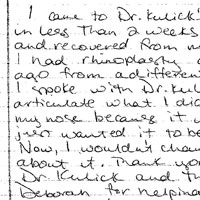 I came to Dr. Kulick
in less than 2 weeks
and recovered from m
I had rhinoplasty
ago from a differen
I spoke with Dr. Kul
articulate what I di
my nose because it
just wanted it to be
Now, I wouldn't chan
about it. Thank you
Dr. Kulick and th
Deborah for helping